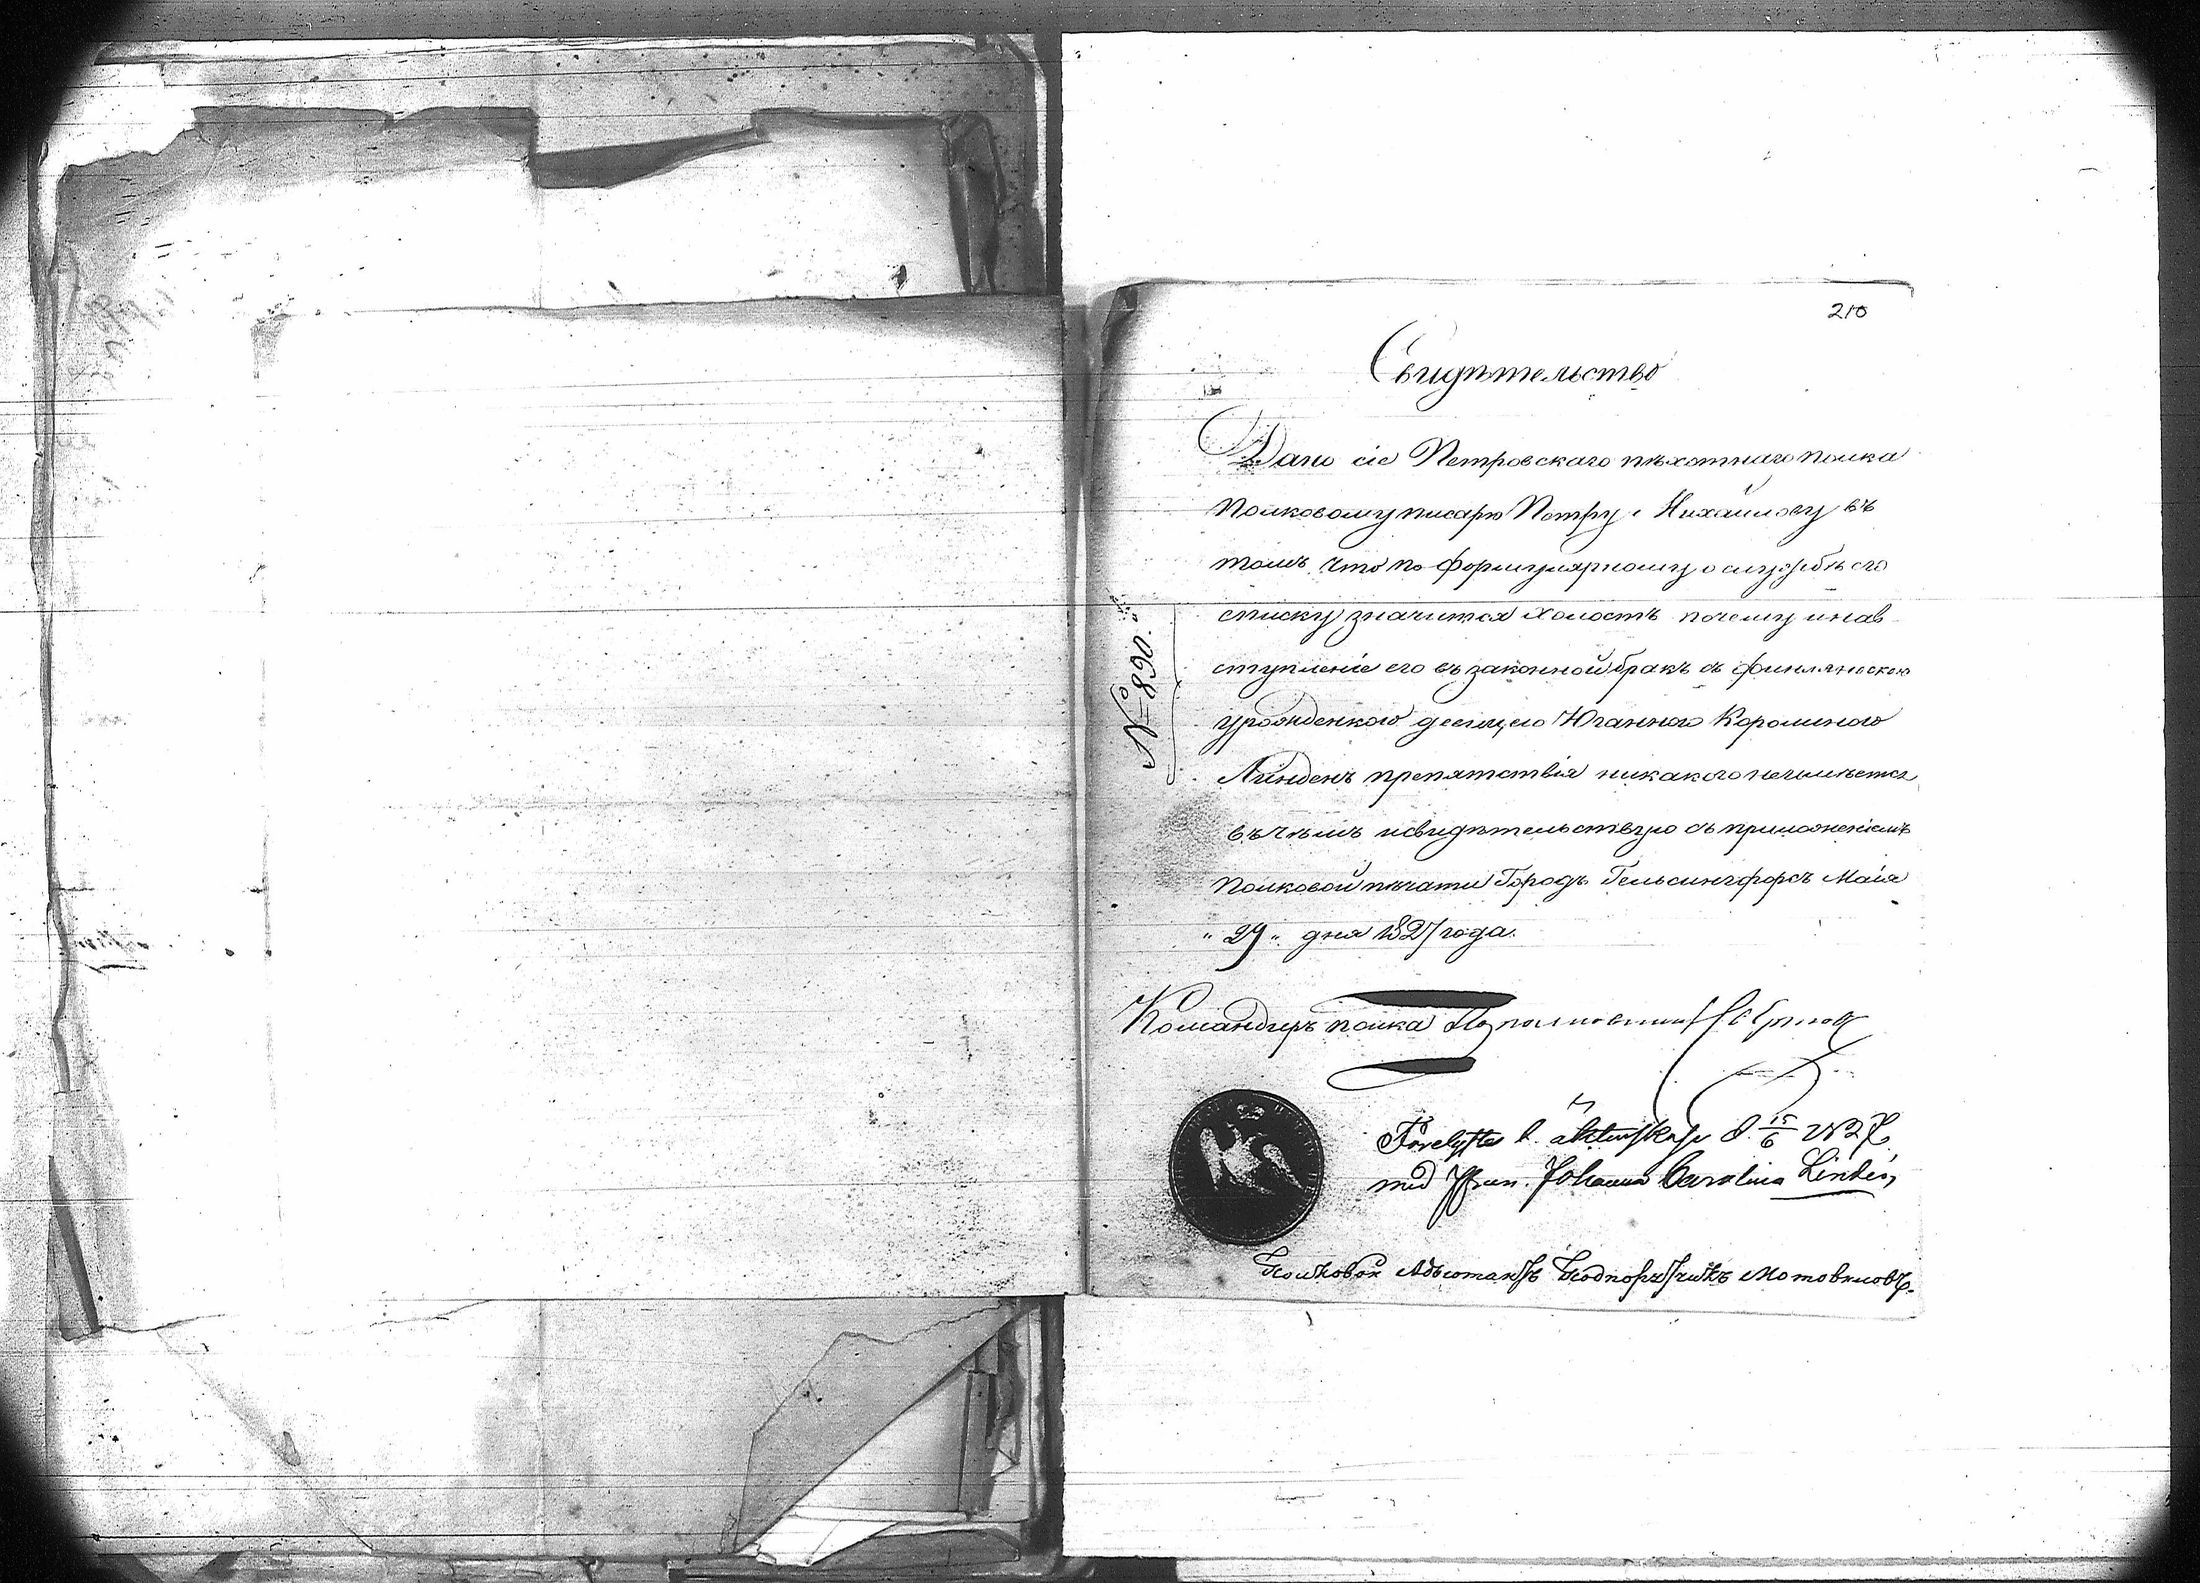 210
Свидѣтельство
Дано сіе Петровскаго пѣхотнаго полка
Полковому писарю Петру Михайлову въ
томъ что по формулярному о службѣ его
списку значится холостъ почему и нав
ступленіе его въ законной бракъ съ финлянскою
урожденкою девицею Юганною Каролиною
Линденъ препятствія никакого неимѣется
въ чѣмъ и свидѣтельствую съ приложеніемъ
Полковой печати Городъ Гельсингфорсъ Маія
„29„ дня 1827 года.
№ 890.
Командиръ полка Подполковникъ
d. 15/6 1827
med Jfrun. Johanna Carolina Lindén,
Полковой Адъютантъ Подпоручикъ Мотовиловъ.